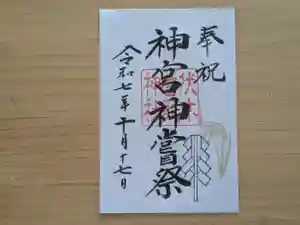 奉祝
神宮神嘗祭
令和七年十月十七日